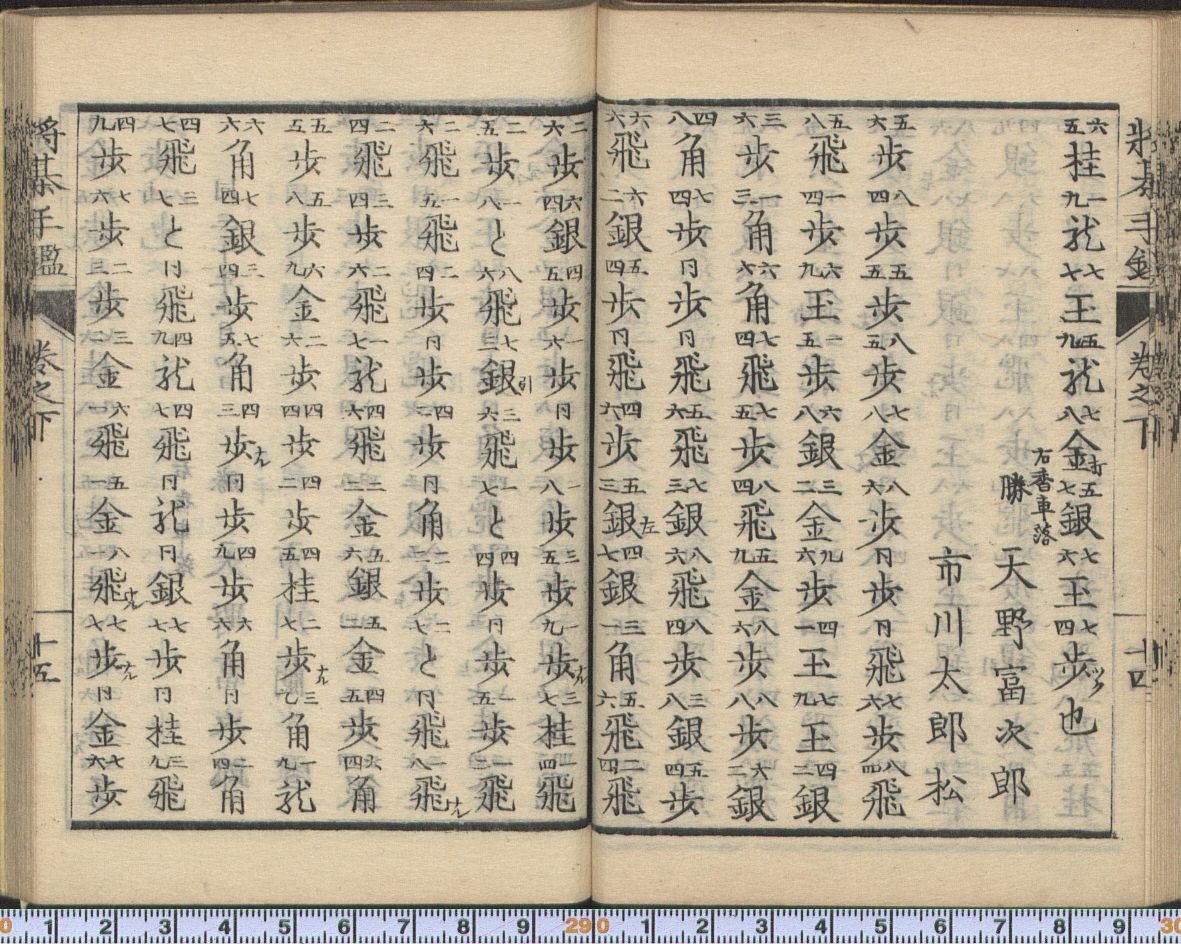 将棊手鑑 巻之下 十四
六五桂 一九龍 七七王 五九龍 七八金打 五七銀 七六王 七四歩ツメ也
右香車落
勝 天野富次郎
市川太郎松
五六歩 八四歩 五五歩 八五歩 七八金 八六歩 同歩 同飛 七六歩 八四飛
五八飛 一四歩 六九王 一五歩 六八銀 三二金 九六歩 四一王 七九王 四二銀
三六歩 一三角 六六角 七四歩 七五歩 八四飛 五九金 八六歩 八八歩 六二銀
四八角 七四歩 同歩 同飛 五六飛 七三銀 八六飛 八四歩 三八銀 五四歩
六六飛 六二銀 五四歩 同飛 四六歩 五三銀左 四七銀 三一角 五六飛 二四飛
二六歩 六四銀 四五歩 一六歩 同歩 一八歩 三五歩 一九歩ナル 三七桂 一四飛
二五歩 一八と 八六飛 七二銀引 三六飛 一七と 四四歩 同金 一五歩 一三飛
二六飛 一五飛 二四歩 同歩 四二歩 同角 二二歩 一七と 同飛 一八飛ナル
二四飛 三四歩 二六飛 一七龍 四六飛 二三金 五六銀 五二金 四五歩 六四角
五五歩 五八歩 六九金 二六歩 四四歩 四二歩 四五桂 二七歩ナル 三七角 一九龍
六六角 七四銀 三四歩 七五角 四三歩ナル 同歩 四九歩 六六角 同歩 二四角
四七飛 三七と 同飛 四九龍 四七飛 同龍 同銀 七七歩 同桂 三九飛
四九歩 七六歩 二三歩 三二金 六一飛 五一金 八一飛ナル 七七歩ナル 同金 七六歩
将棊手鑑 巻之下 十五